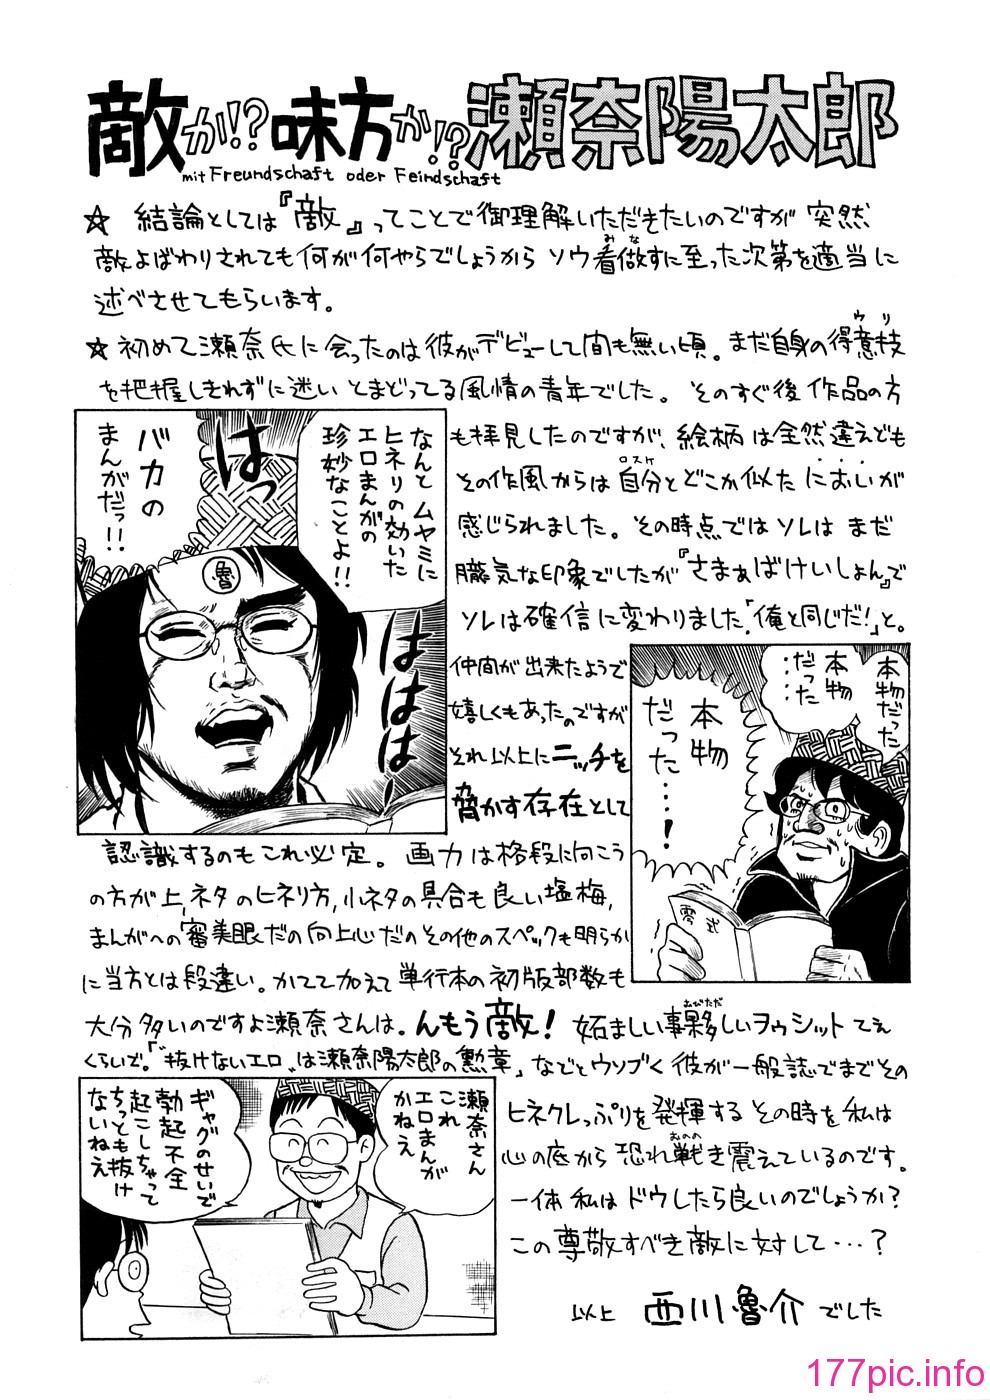 敵か!?味方か!?瀬奈陽太郎
mit Freundschaft oder Feindschaft
☆ 結論としては『敵』ってことで御理解いただきたいのですが 突然
敵よばわりされても何が何やらでしょうから ソウ看做すに至った次第を適当に
みな
述べさせてもらいます。
☆初めて瀬奈氏に会ったのは彼がデビューして間も無い頃。まだ自身の得意技
ウリ
を把握しきれずに迷い とまどってる風情の青年でした。そのすぐ後 作品の方
も拝見したのですが、絵柄は全然違えども
その作風からは自分とどこか似たにおいが
ロスケ
感じられました。その時点ではソレはまだ
朧気な印象でしたが『さまぁばけいしょん』で
ソレは確信に変わりました。「俺と同じだ!」と。
なんと ムヤミに
ヒネリの効いた
エロまんがの
珍妙なことよ!!
はっ
バカの
まんがだっ!!
魯
ははは
仲間が出来たようで
嬉しくもあったのですが
それ以上にニッチを
脅かす存在として
認識するのもこれ必定。画力は格段に向こう
の方が上、ネタのヒネリ方,小ネタの具合も良い塩梅,
まんがへの審美眼だの向上心だのその他のスペックも明らか
に当方とは段違い。かてて加えて単行本の初版部数も
本物だった
本物
だった
……
本物
だった……!
零式
大分多いのですよ瀬奈さんは。んもう敵! 妬ましい事夥しいヲゥシットてえ
おびただ
くらいで。「〝抜けないエロ〟は瀬奈陽太郎の勲章」などとウソブく彼が一般誌でまでその
ヒネクレっぷりを発揮するその時を私は
心の底から恐れ戦き震えているのです。
おのの
一体私はドウしたら良いのでしょうか?
この尊敬すべき敵に対して…?
瀬奈さん
これ
エロまんが
かねえ
ギャグのせいで
勃起不全
起こしちゃって
ちっとも抜け
ないねえ
以上 西川魯介でした
177pic.info